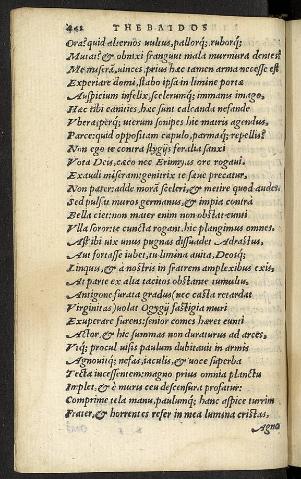 THEBAIDOS
Ora? quid alternos vultus, pallorq; ruborq;
Mutat? & obnixi frangunt mala murmura dentes?
Me miserā, vinces, prius hæc tamen arma necesse est
Experiare domi, stabo ipsa in limine portæ
Auspicium infelix, scelerumq; immanis imago,
Hæc tibi canities, hæc sunt calcanda nefande
Vbera, perq; uterum sonipes hic matris agendus,
Parce: quid oppositam capulo, parmaq; repellis?
Non ego te contra stygijs feralia sanxi
Vota Deis, cæco nec Erinnyas ore rogavi.
Exaudi miseram: genitrix te sæve precatur,
Non pater: adde morā sceleri, & metire quod audes.
Sed pulsat muros germanus, & impia contra
Bella ciet: non mater enim non obstat eunti
Vlla soror: te cuncta rogant, hic plangimus omnes.
Ast ibi vix unus pugnas dissuadet Adrastus,
Aut fortasse iubet, tu limina avita, Deosq;
Linquis, & à nostris in fratrem amplexibus exis,
At parte ex alia tacitos obstante tumultu
Antigone furata gradus (nec casta retardat
Virginitas) volat Ogygij fastigia muri
Exuperare furens: senior comes hæret eunti
Actor, & hic summas non duraturus ad arces.
Vtq; procul visis paulum dubitavit in armis
Agnovitq; nefas, iaculis, & voce superba
Tecta incessentem: magno prius omnia planctu
Implet, & è muris ceu descensura profatur:
Comprime tela manu, paulumq; hanc aspice turrim
Frater, & horrentes refer in mea lumina cristas,
Agno